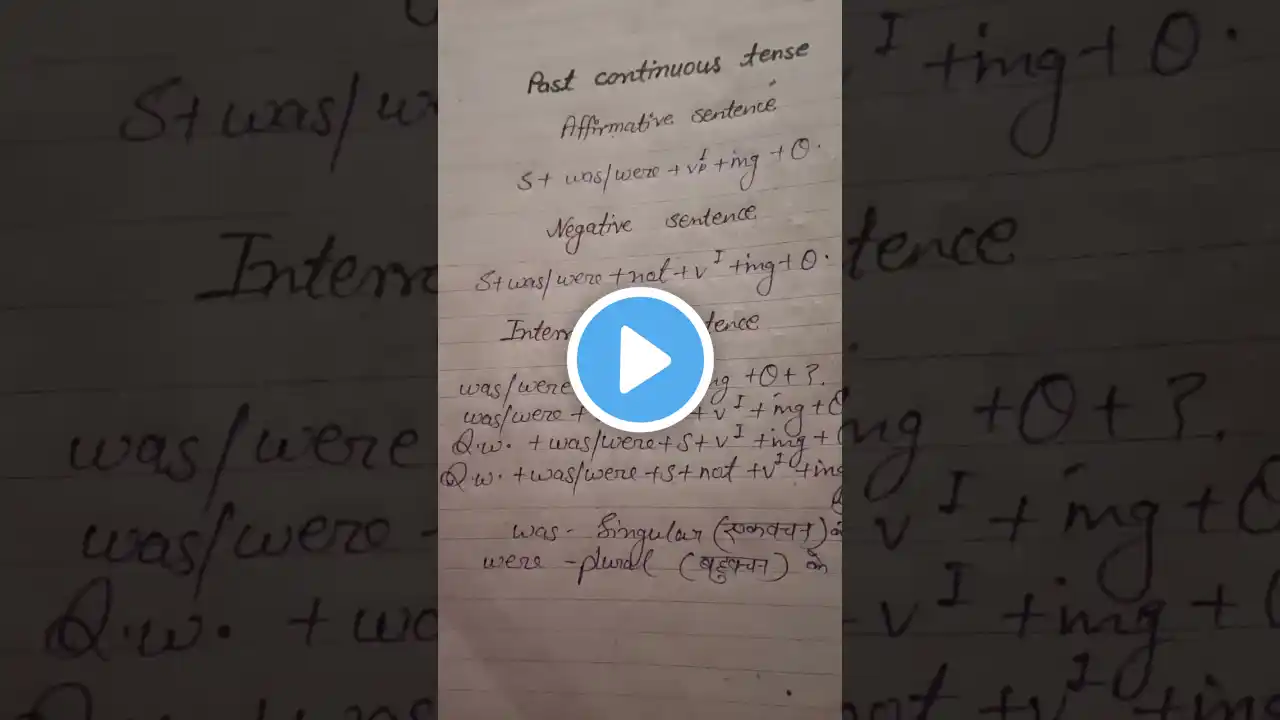 Past continuous tense
Affirmative sentence
S+ was/were + v I + ing + O.
Negative sentence
S+was/were +not +v I +ing+ O.
was/were +O+?.
was/were + + v I + ing +O
Q.w. +was/were+S+v I +ing+
Q.w. +was/were +S+not +v I +ing
was - Singular (एकवचन) के
were -plural (बहुवचन) के